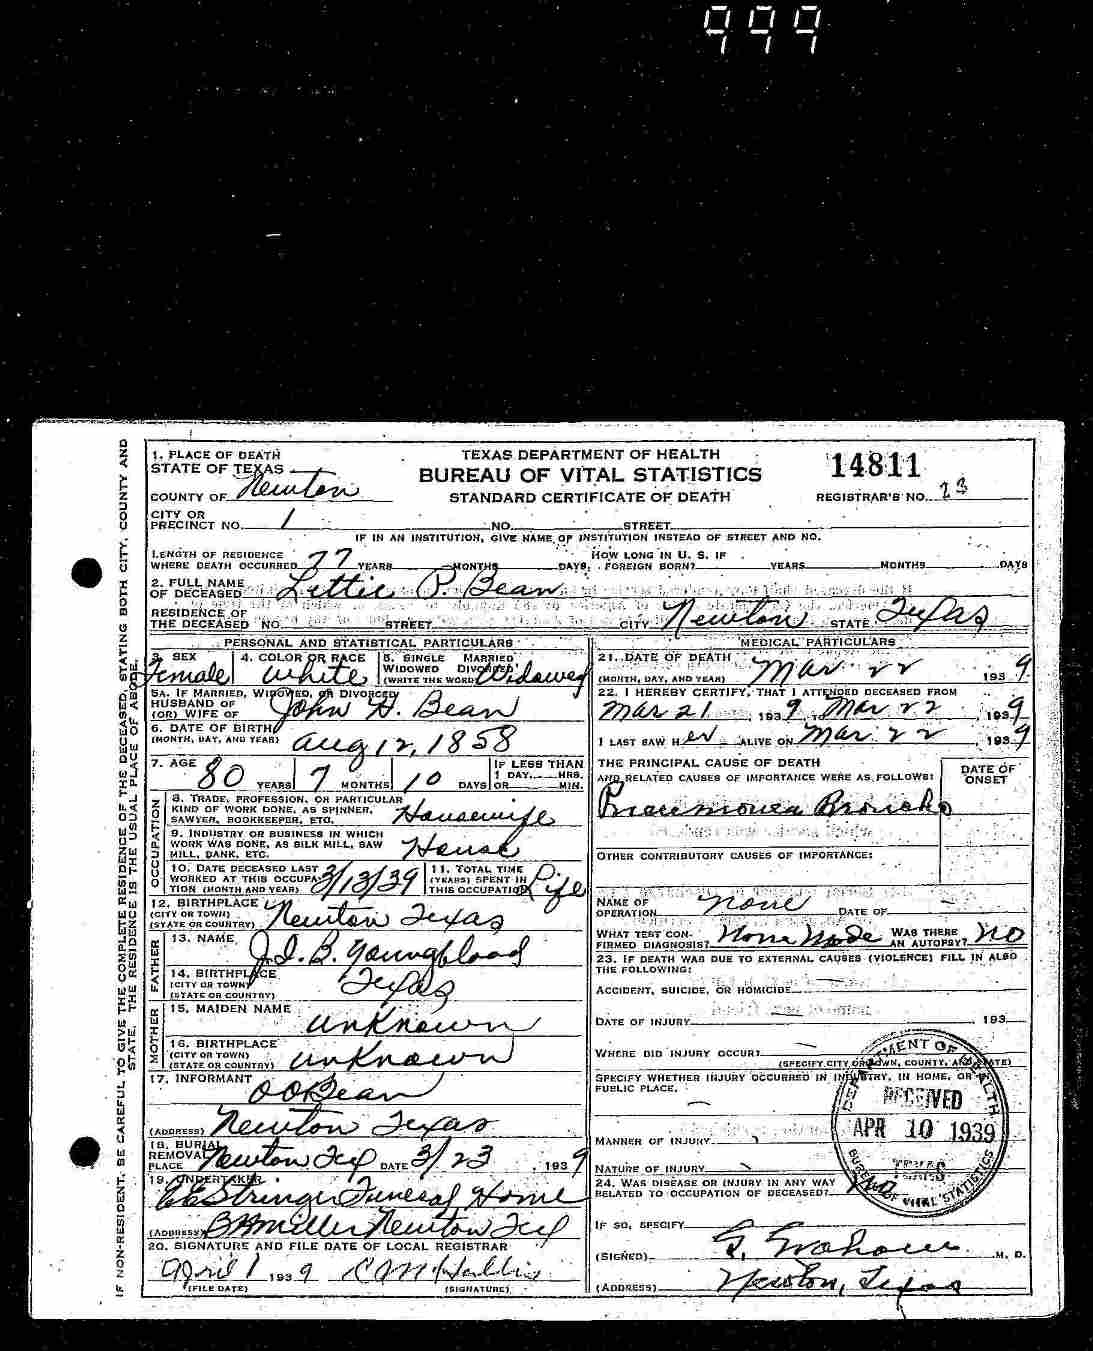 999
1. PLACE OF DEATH
STATE OF TEXAS
COUNTY OF Newton
TEXAS DEPARTMENT OF HEALTH
BUREAU OF VITAL STATISTICS
STANDARD CERTIFICATE OF DEATH
14811
REGISTRAR'S NO. 23
CITY OR
PRECINCT NO. 1 NO. STREET
IF IN AN INSTITUTION, GIVE NAME OF INSTITUTION INSTEAD OF STREET AND NO.
LENGTH OF RESIDENCE
WHERE DEATH OCCURRED 77 YEARS MONTHS DAYS.
HOW LONG IN U. S. IF
FOREIGN BORN? YEARS MONTHS DAYS
2. FULL NAME
OF DECEASED Lettie P. Bean
RESIDENCE OF
THE DECEASED NO. STREET CITY Newton STATE Texas
PERSONAL AND STATISTICAL PARTICULARS
3. SEX
Female
4. COLOR OR RACE
White
5. SINGLE MARRIED
WIDOWED DIVORCED
(WRITE THE WORD) Widowed
5A. IF MARRIED, WIDOWED, OR DIVORCED
HUSBAND OF
(OR) WIFE OF John H. Bean
6. DATE OF BIRTH
(MONTH, DAY, AND YEAR) Aug 12, 1858
7. AGE
80 YEARS 7 MONTHS 10 DAYS
IF LESS THAN
1 DAY HRS.
OR MIN.
OCCUPATION
8. TRADE, PROFESSION, OR PARTICULAR
KIND OF WORK DONE, AS SPINNER,
SAWYER, BOOKKEEPER, ETC. Housewife
9. INDUSTRY OR BUSINESS IN WHICH
WORK WAS DONE, AS SILK MILL, SAW
MILL, BANK, ETC. House
10. DATE DECEASED LAST
WORKED AT THIS OCCUPA-
TION (MONTH AND YEAR) 3/13/39
11. TOTAL TIME
(YEARS) SPENT IN
THIS OCCUPATION Life
12. BIRTHPLACE
(CITY OR TOWN)
(STATE OR COUNTRY) Newton Texas
FATHER
13. NAME J. I. B. Youngblood
14. BIRTHPLACE
(CITY OR TOWN)
(STATE OR COUNTRY) Texas
MOTHER
15. MAIDEN NAME unknown
16. BIRTHPLACE
(CITY OR TOWN)
(STATE OR COUNTRY) unknown
17. INFORMANT O O Bean
(ADDRESS) Newton Texas
18. BURIAL
REMOVAL
PLACE Newton Tex DATE 3/23, 1939
19. UNDERTAKER
E E Stringer Funeral Home
(ADDRESS) B H Miller Newton Tex
20. SIGNATURE AND FILE DATE OF LOCAL REGISTRAR
April 1 1939
(FILE DATE) (SIGNATURE)
MEDICAL PARTICULARS
21. DATE OF DEATH
(MONTH, DAY, AND YEAR) Mar 22 1939
22. I HEREBY CERTIFY, THAT I ATTENDED DECEASED FROM
Mar 21, 1939 TO Mar 22, 1939
I LAST SAW HER ALIVE ON Mar. 22, 1939
THE PRINCIPAL CAUSE OF DEATH
AND RELATED CAUSES OF IMPORTANCE WERE AS FOLLOWS:
DATE OF
ONSET
Pneumonia Broncho
OTHER CONTRIBUTORY CAUSES OF IMPORTANCE:
NAME OF
OPERATION none DATE OF
WHAT TEST CON-
FIRMED DIAGNOSIS? None Made
WAS THERE
AN AUTOPSY? NO
23. IF DEATH WAS DUE TO EXTERNAL CAUSES (VIOLENCE) FILL IN ALSO
THE FOLLOWING:
ACCIDENT, SUICIDE, OR HOMICIDE
DATE OF INJURY , 193
WHERE DID INJURY OCCUR?
(SPECIFY CITY OR TOWN, COUNTY, AND STATE)
SPECIFY WHETHER INJURY OCCURRED IN INDUSTRY, IN HOME, OR
PUBLIC PLACE.
MANNER OF INJURY
NATURE OF INJURY
24. WAS DISEASE OR INJURY IN ANY WAY
RELATED TO OCCUPATION OF DECEASED? No
IF SO, SPECIFY
(SIGNED) M. D.
(ADDRESS) Newton, Texas
DEPARTMENT OF HEALTH
RECEIVED
APR 10 1939
TEXAS
BUREAU OF VITAL STATISTICS
IF NON-RESIDENT, BE CAREFUL TO GIVE THE COMPLETE RESIDENCE OF THE DECEASED, STATING BOTH CITY, COUNTY AND
STATE. THE RESIDENCE IS THE USUAL PLACE OF ABODE.